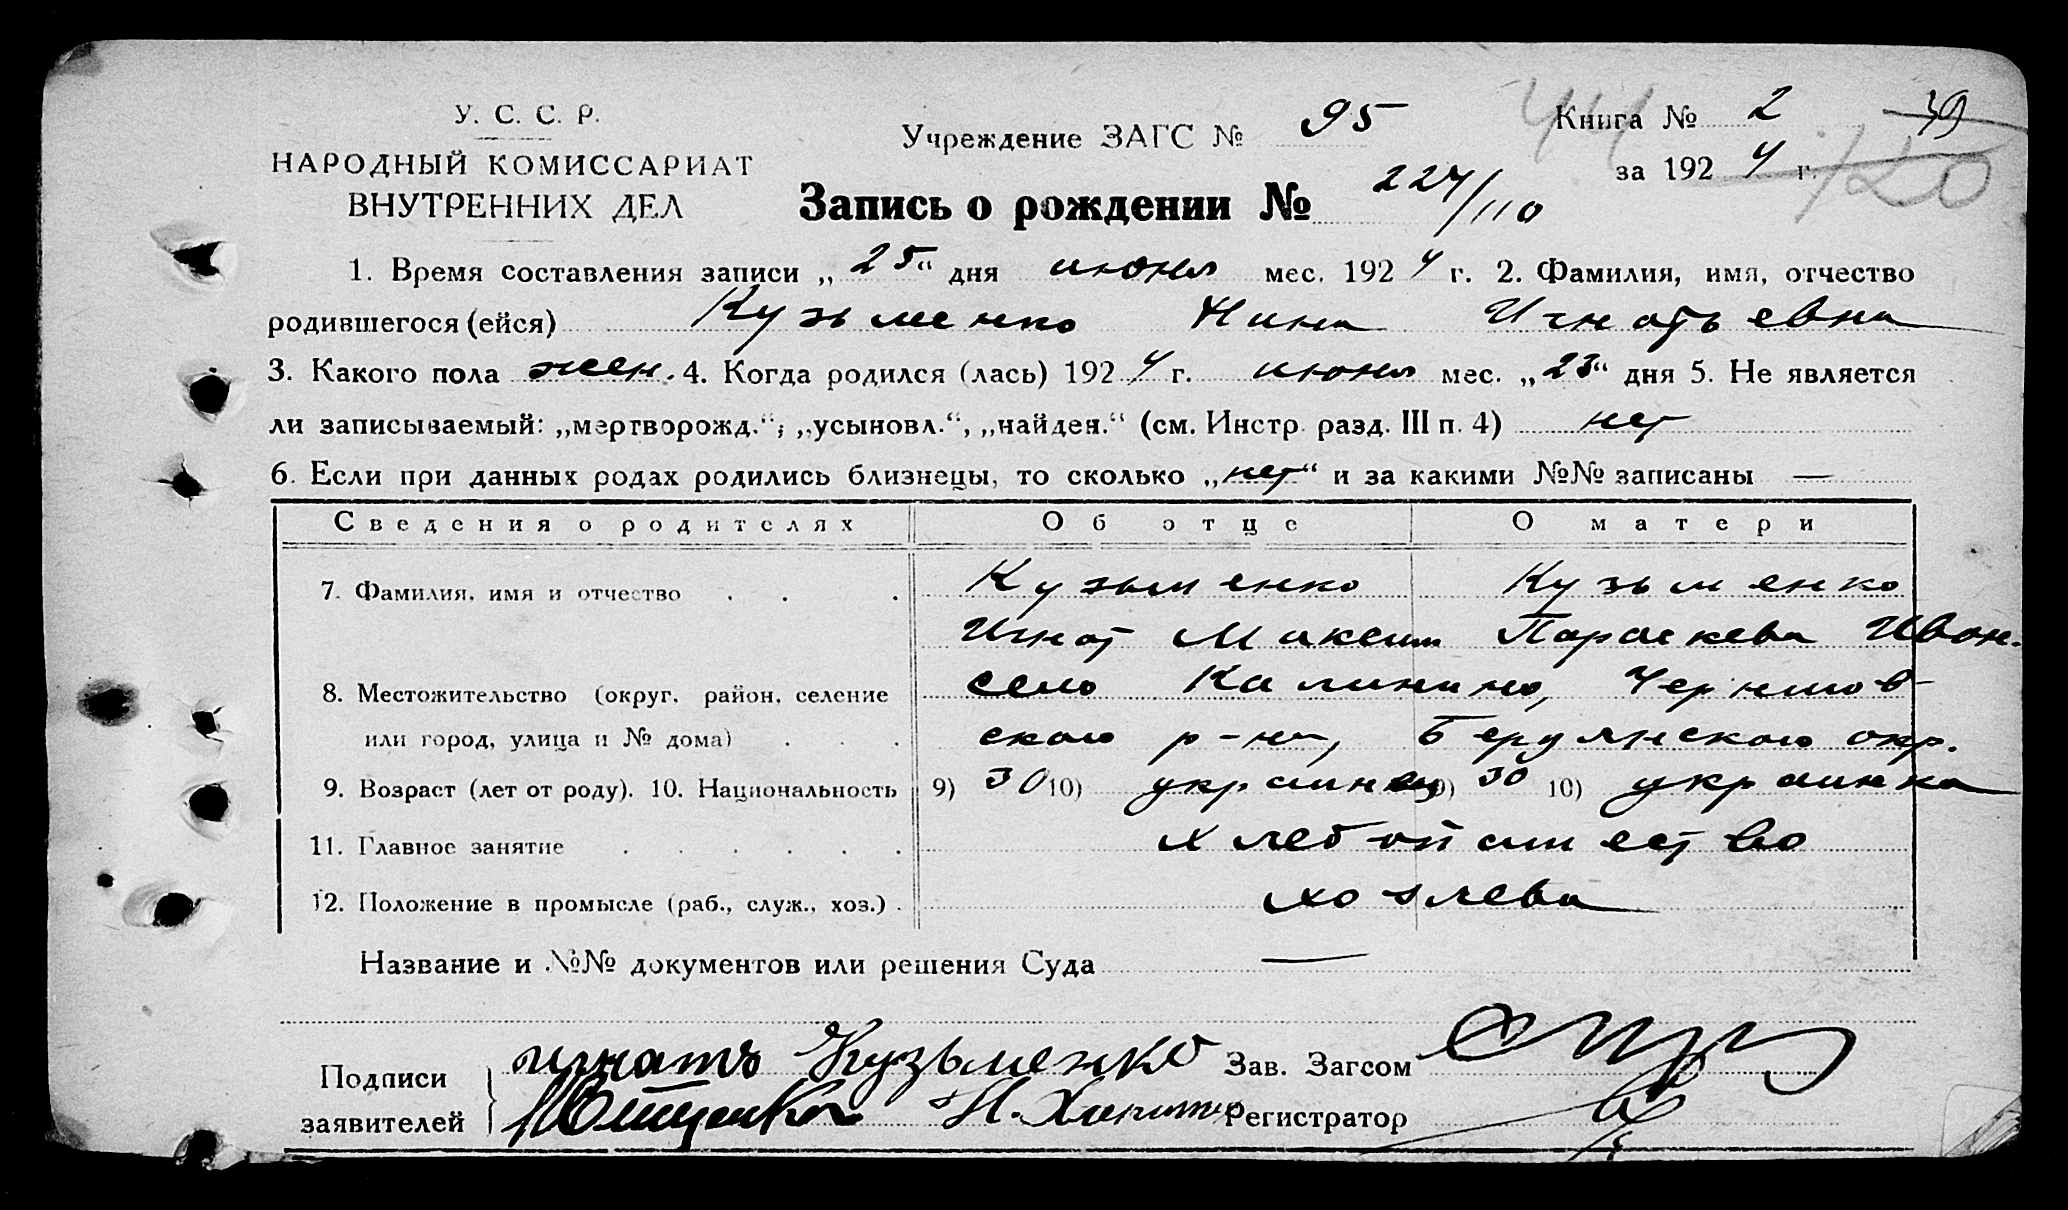 У. С. С. Р.
НАРОДНЫЙ КОМИССАРИАТ
ВНУТРЕННИХ ДЕЛ
Учреждение ЗАГС № 95
Книга № 2 39
за 192 4 г. 120
Запись о рождении № 224/110
1. Время составления записи „ 25 “ дня июня мес. 192 4 г. 2. Фамилия, имя, отчество
родившегося (ейся) Кузьменко Нина Игнатьевна
3. Какого пола жен. 4. Когда родился (лась) 192 4 г. июня мес. „ 23 “ дня 5. Не является
ли записываемый: „мертворожд.“, „усыновл.“, „найден.“ (см. Инстр. разд. III п. 4) нет
6. Если при данных родах родились близнецы, то сколько „ нет “ и за какими №№ записаны —
Сведения о родителях Об отце О матери
7. Фамилия, имя и отчество . . . Кузьменко Кузьменко
Игнат Максим Параскева Иван.
8. Местожительство (округ, район, селение село Калинино, Чернигов-
или город, улица и № дома) . . . ского р-на, Бердянского окр.
9. Возраст (лет от роду). 10. Национальность 9) 30 10) украинец 9) 30 10) украинка
11. Главное занятие . . . . . . хлебопашество
12. Положение в промысле (раб., служ., хоз.) . хозяева
Название и №№ документов или решения Суда —
Подписи заявителей Игнатъ Кузьменко
Зав. Загсом
Регистратор